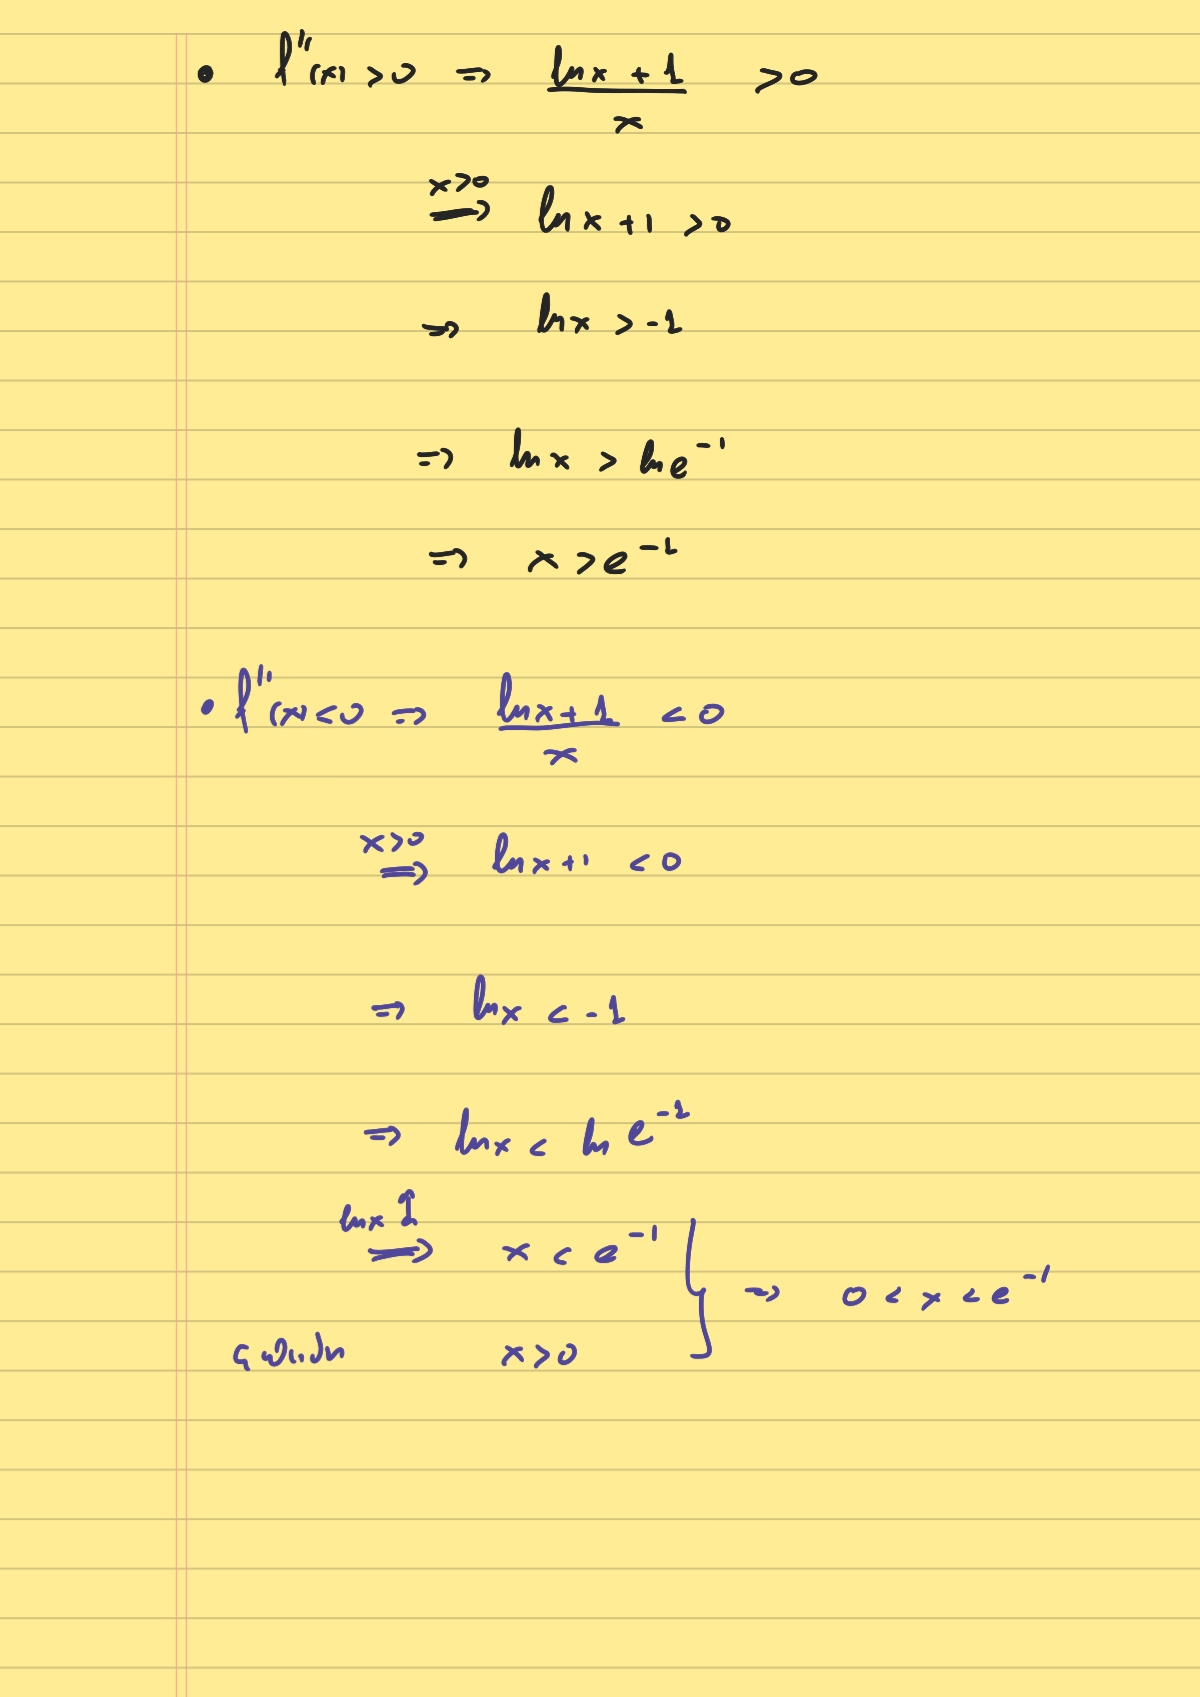 • f''(x) > 0 ⇒ (ln x + 1)/x > 0
x>0 ⟹ ln x + 1 > 0
⇒ ln x > -1
⇒ ln x > ln e^-1
⇒ x > e^-1
• f''(x) < 0 ⇒ (ln x + 1)/x < 0
x>0 ⟹ ln x + 1 < 0
⇒ ln x < -1
⇒ ln x < ln e^-1
ln x ↑ ⟹ x < e^-1
x > 0 } ⇒ 0 < x < e^-1